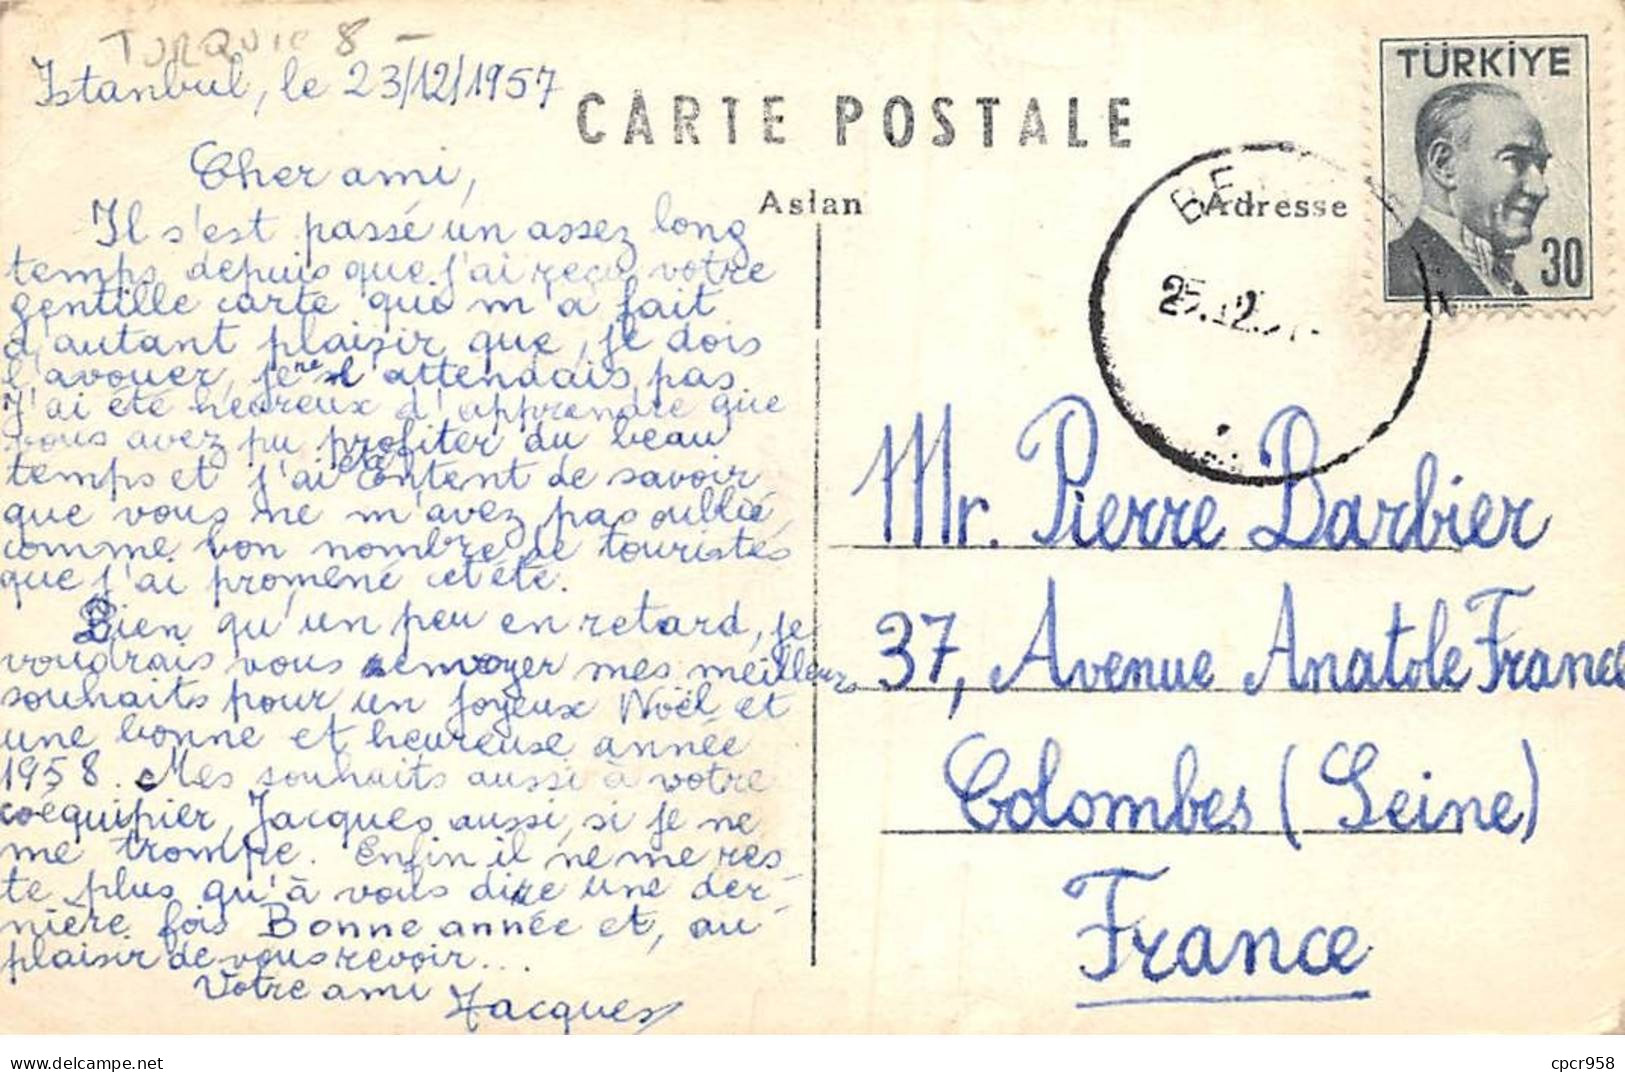 TURQUIE 8 -
Istanbul, le 23/12/1957
CARTE POSTALE
Aslan
Adresse
TÜRKİYE
30
Cher ami,
Il s'est passé un assez long
temps depuis que j'ai reçu votre
gentille carte qui m'a fait
d'autant plaisir que, je dois
l'avouer, je ne l'attendais pas.
J'ai été heureux d'apprendre que
vous avez pu profiter du beau
temps et j'ai été content de savoir
que vous ne m'avez pas oublié,
comme bon nombre de touristes
que j'ai promené cet été.
Bien qu'un peu en retard, je
voudrais vous envoyer mes meilleurs
souhaits pour un joyeux Noël et
une bonne et heureuse année
1958. Mes souhaits aussi à votre
coéquipier, Jacques aussi, si je ne
me trompe. Enfin il ne me res-
te plus qu'à vous dire une der-
nière fois Bonne année et, au
plaisir de vous revoir...
Votre ami Jacques
Mr. Pierre Barbier
37, Avenue Anatole France
Colombes (Seine)
France
https://www.delcampe.net
cpcr958